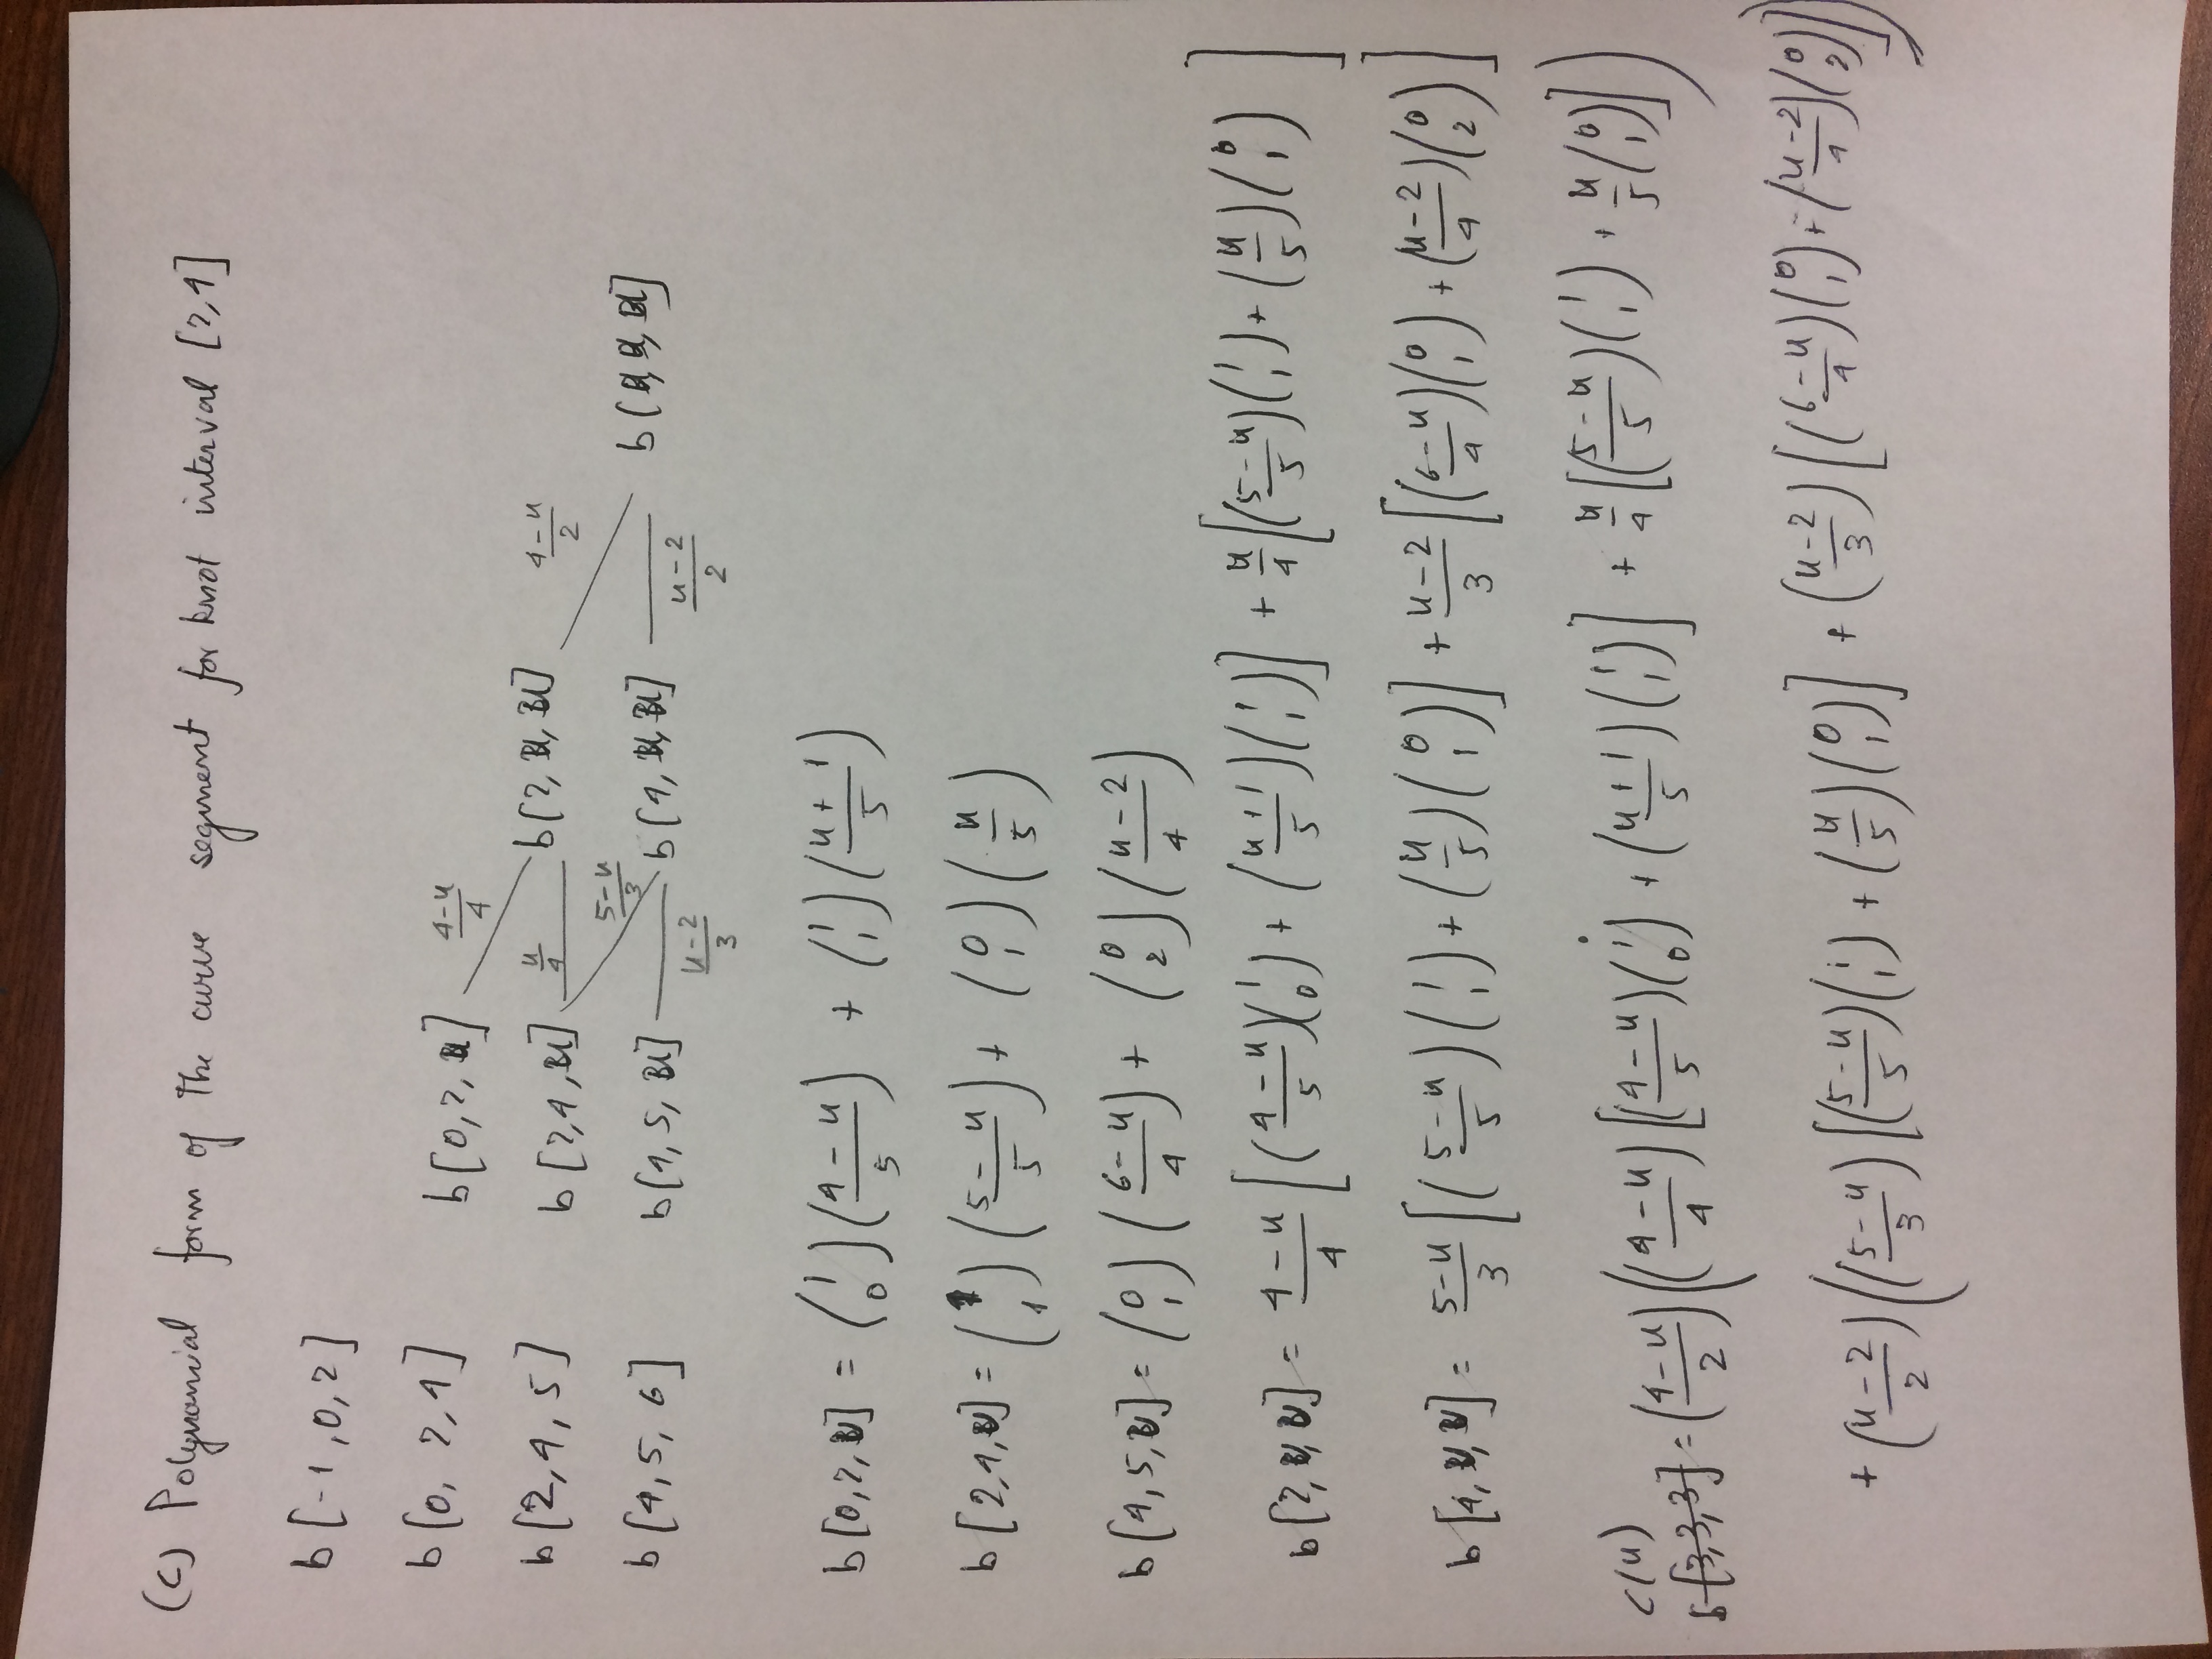 (c) Polynomial form of the curve segment for knot interval [2,4]
b[-1,0,2]
b[0,2,4] b[0,2,u] (4-u)/4
b[2,4,5] b[2,4,u] u/4 b[2,u,u] (4-u)/2
(5-u)/3
b[4,5,6] b[4,5,u] (u-2)/3 b[4,u,u] (u-2)/2 b[u,u,u]
b[0,2,u] = (1 0) ((4-u)/5) + (1 1) ((u+1)/5)
b[2,4,u] = (1 1) ((5-u)/5) + (0 1) (u/5)
b[4,5,u] = (0 1) ((6-u)/4) + (0 2) ((u-2)/4)
b[2,u,u] = (4-u)/4 [((4-u)/5)(1 0) + ((u+1)/5)(1 1)] + u/4 [((5-u)/5)(1 1) + (u/5)(0 1)]
b[4,u,u] = (5-u)/3 [((5-u)/5)(1 1) + (u/5)(0 1)] + (u-2)/3 [((6-u)/4)(0 1) + ((u-2)/4)(0 2)]
c(u)
b[3,3,3] = ((4-u)/2) (((4-u)/4) [((4-u)/5)(1 0) + ((u+1)/5)(1 1)] + u/4 [((5-u)/5)(1 1) + u/5 (0 1)])
+ ((u-2)/2) (((5-u)/3) [((5-u)/5)(1 1) + (u/5)(0 1)] + ((u-2)/3) [((6-u)/4)(0 1) + ((u-2)/4)(0 2)])